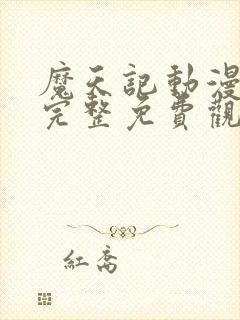 魔天記動漫
完整免費觀
紅喬